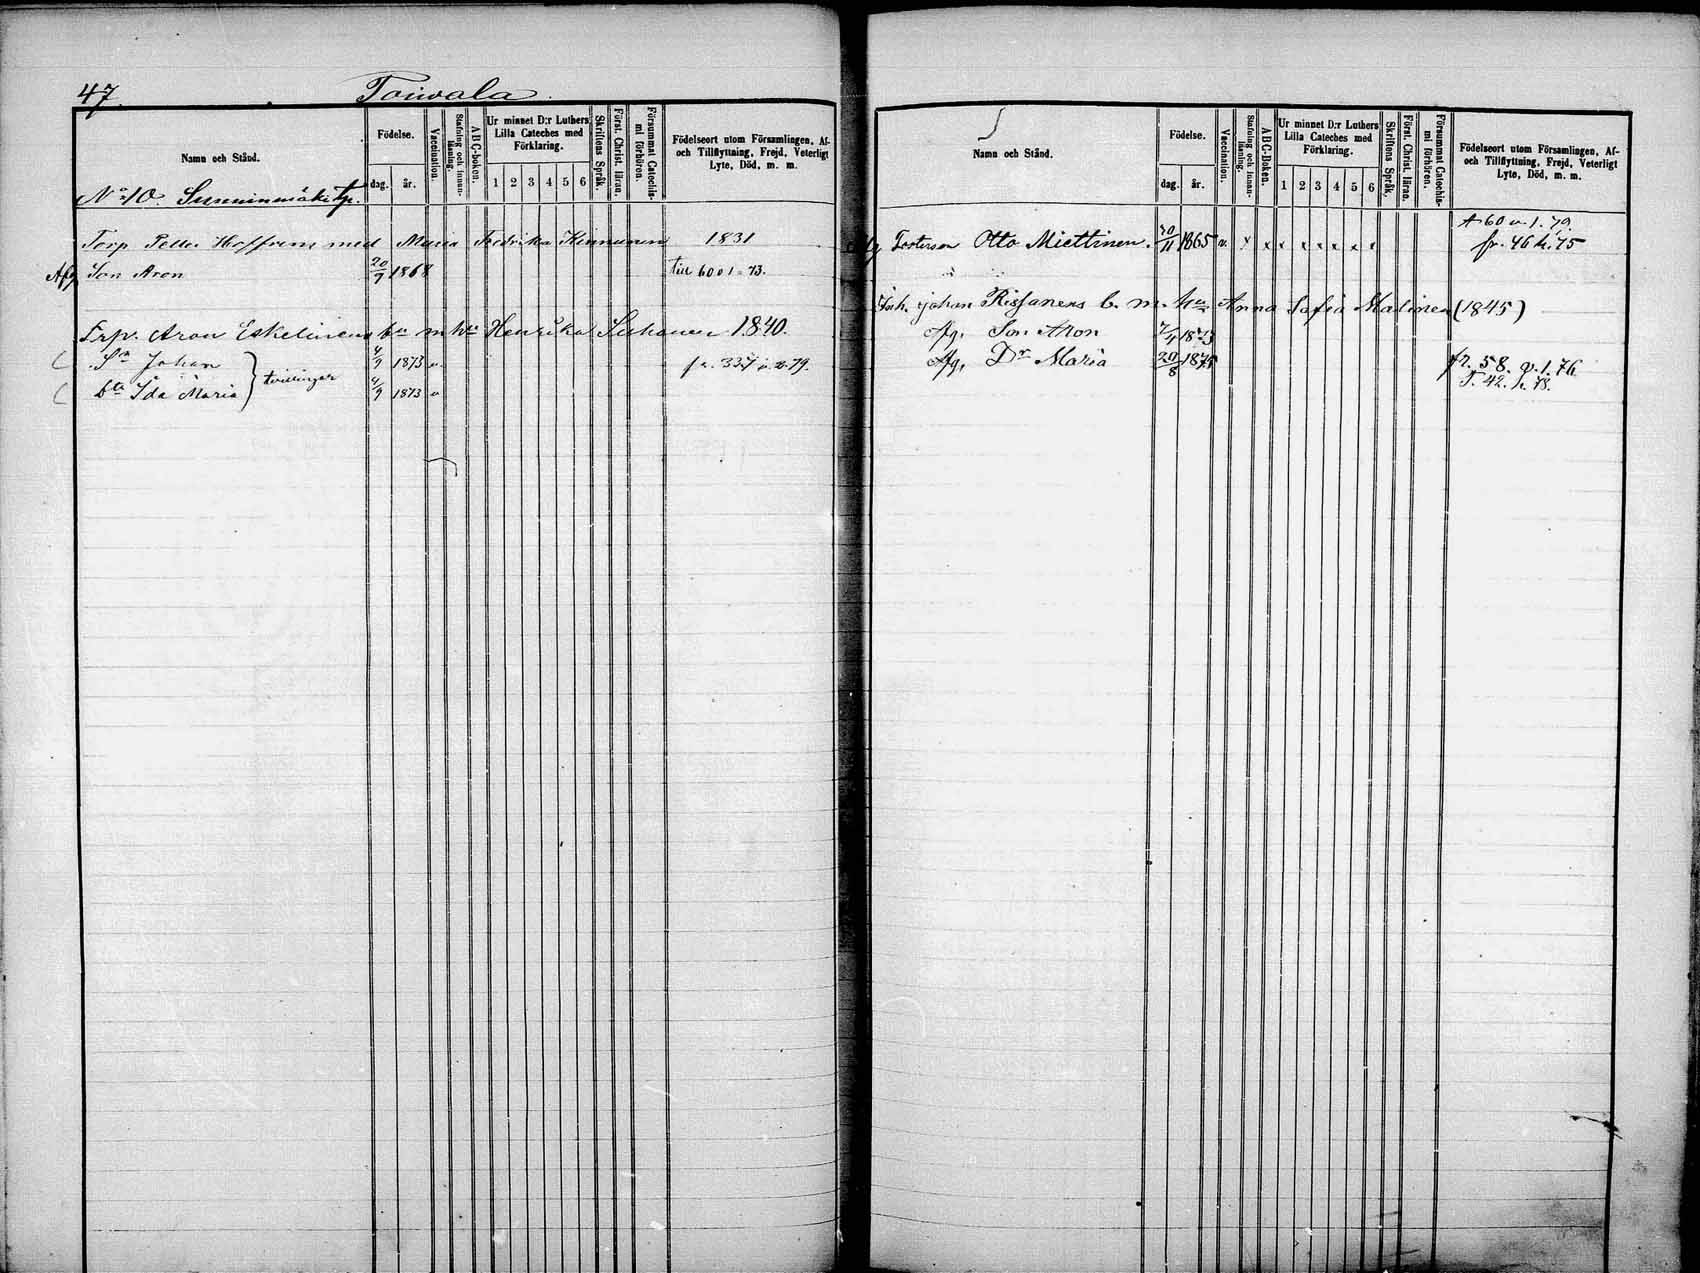 47. Toiwala.
Namn och Stånd.
Födelse.
dag. år.
Vaccination.
Stafning och innan-läsning.
ABC-boken.
Ur minnet D:r Luthers Lilla Cateches med Förklaring.
1 2 3 4 5 6
Skriftens Språk.
Först. Christ. läran.
Försummat Catechis-mi förhören.
Födelseort utom Församlingen, Af-
och Tillflyttning, Frejd, Veterligt
Lyte, Död, m. m.
No 10. Surninmäki tp.
Torp. Petter Hoffrens med Maria Fredrika Kinnunen 1831
Afg Son Aron 20/7 1868 till 60 v 1. 73.
Trp. Aron Eskelinens bn m hu Henrika Suhonen 1840.
Sn Johan 4/9 1873 v. fr. 337
dtr Ida Maria 4/9 1873 v
tvillingar
Namn och Stånd.
Födelse.
dag. år.
Vaccination.
Stafning och innan-läsning.
ABC-Boken.
Ur minnet D:r Luthers Lilla Cateches med Förklaring.
1 2 3 4 5 6
Skriftens Språk.
Först. Christ. läran.
Försummat Catechis-mi förhören.
Födelseort utom Församlingen, Af-
och Tillflyttning, Frejd, Veterligt
Lyte, Död, m. m.
t 60 v. 1. 79.
Fosterson Otto Miettinen. 30/11 1865 v. x x x x x x x x fr. 46 h. 75
Inh. Johan Rissanens b. m. hu Anna Sofia Malinen (1845)
Afg. Son Aron 7/4 1873
Afg. Dr Maria 20/8 1875 fr. 58. v. 1. 76.
T. 42. h. 78.